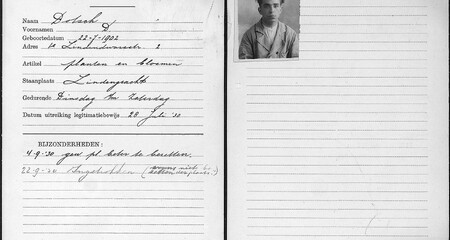 Naam Dotsch
Voornamen D
Geboortedatum 22-7-1902
Adres 2
Artikel planten en bloemen
Staanplaats Lindengracht
Gedurende Dinsdag t/m Zaterdag
Datum uitreiking legitimatiebewijs 28 Juli '30
BIJZONDERHEDEN:
4-9-30 gen. pl.
22-9-30 Ingetrokken